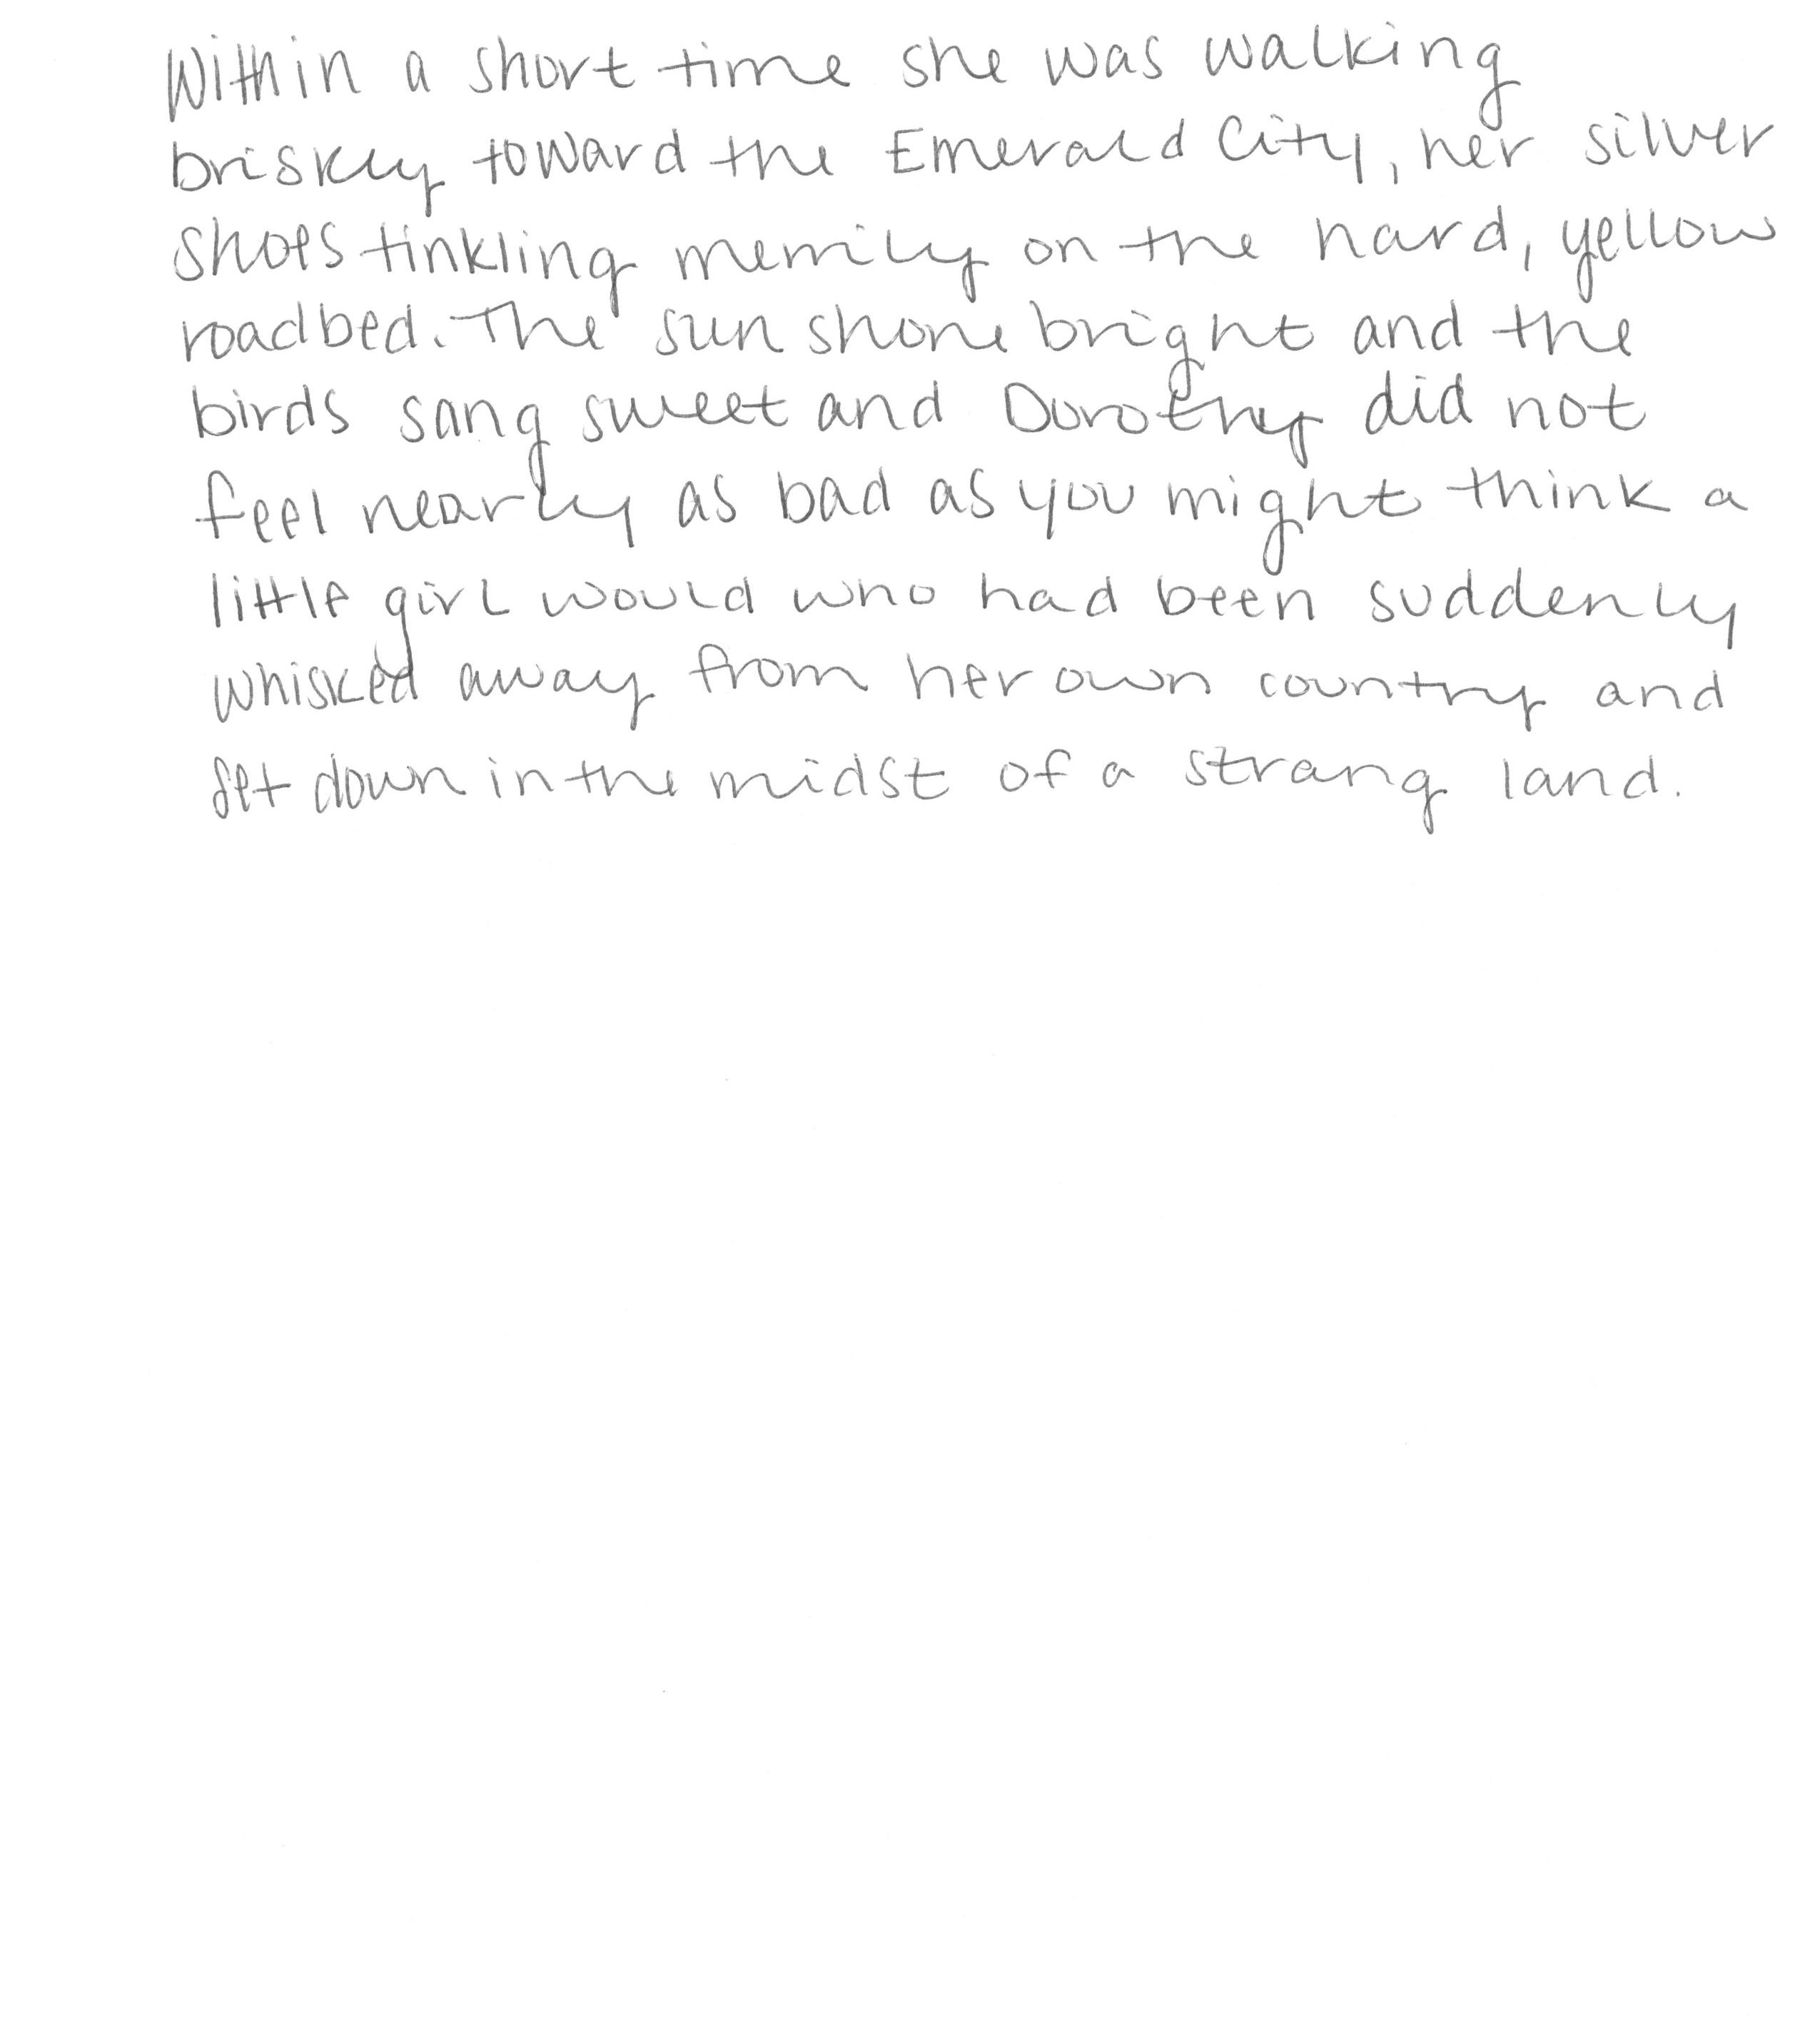 Within a short time she was walking
briskly toward the Emerald City, her silver
shoes tinkling merrily on the hard, yellow
roadbed. The sun shone bright and the
birds sang sweet and Dorothy did not
feel nearly as bad as you might think a
little girl would who had been suddenly
whisked away from her own country and
set down in the midst of a strang land.